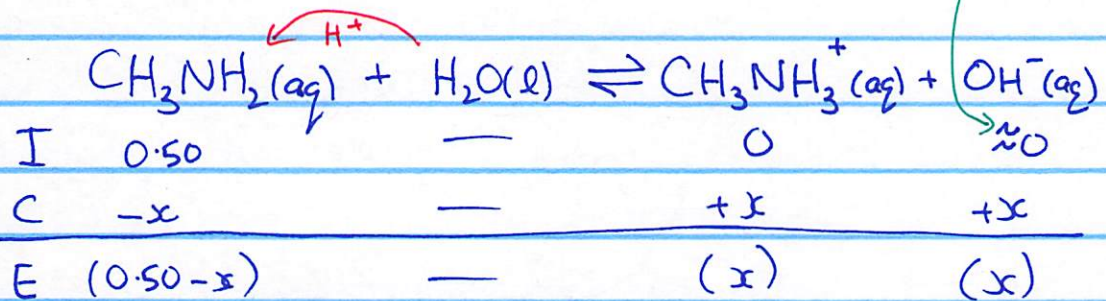 H⁺
CH₃NH₂(aq) + H₂O(l) ⇌ CH₃NH₃⁺(aq) + OH⁻(aq)
I 0.50 — 0 ≈0
C -x — +x +x
E (0.50-x) — (x) (x)